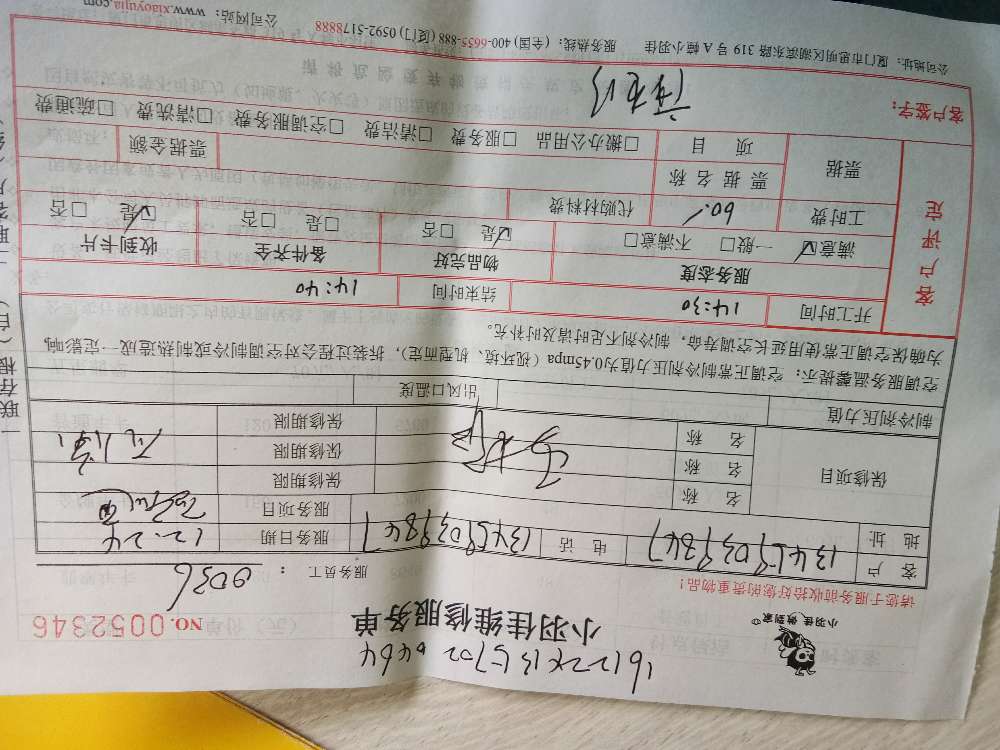 小羽佳 做到家
小羽佳维修服务单
NO. 0052346
请您于服务前收拾好您的贵重物品!
服务员工： 9036
客户 13459039847 电话 13459039847
地址 服务日期 12.24
服务项目
保修项目 名称 保修期限
名称 保修期限
名称 保修期限
制冷剂压力值 出风口温度
空调服务温馨提示：空调正常制冷剂压力值为0.45mpa（视环境、机型而定），拆装过程会对空调制冷或制热造成一定影响，
为保空调正常使用延长空调寿命，制冷剂不足时请及时补充。
开工时间 14:30 结束时间 14:40
客户评定
服务态度 物品完好 备件齐全 收到卡片
☑满意 □一般 □不满意 ☑是 □否 □是 □否 ☑是 □否
工时费 60. 代购材料费
票据 票据名称 票据金额
项目 □搬办公用品 □服务费 □清洁费 □空调服务费 □清洗费 □疏通费
客户签字：
公司地址：厦门市思明区湖滨东路 319 号 A 幢小羽佳 服务热线：(全国) 400-6655-888 (厦门) 0592-5178888 公司网站：www.xiaoyujia.com